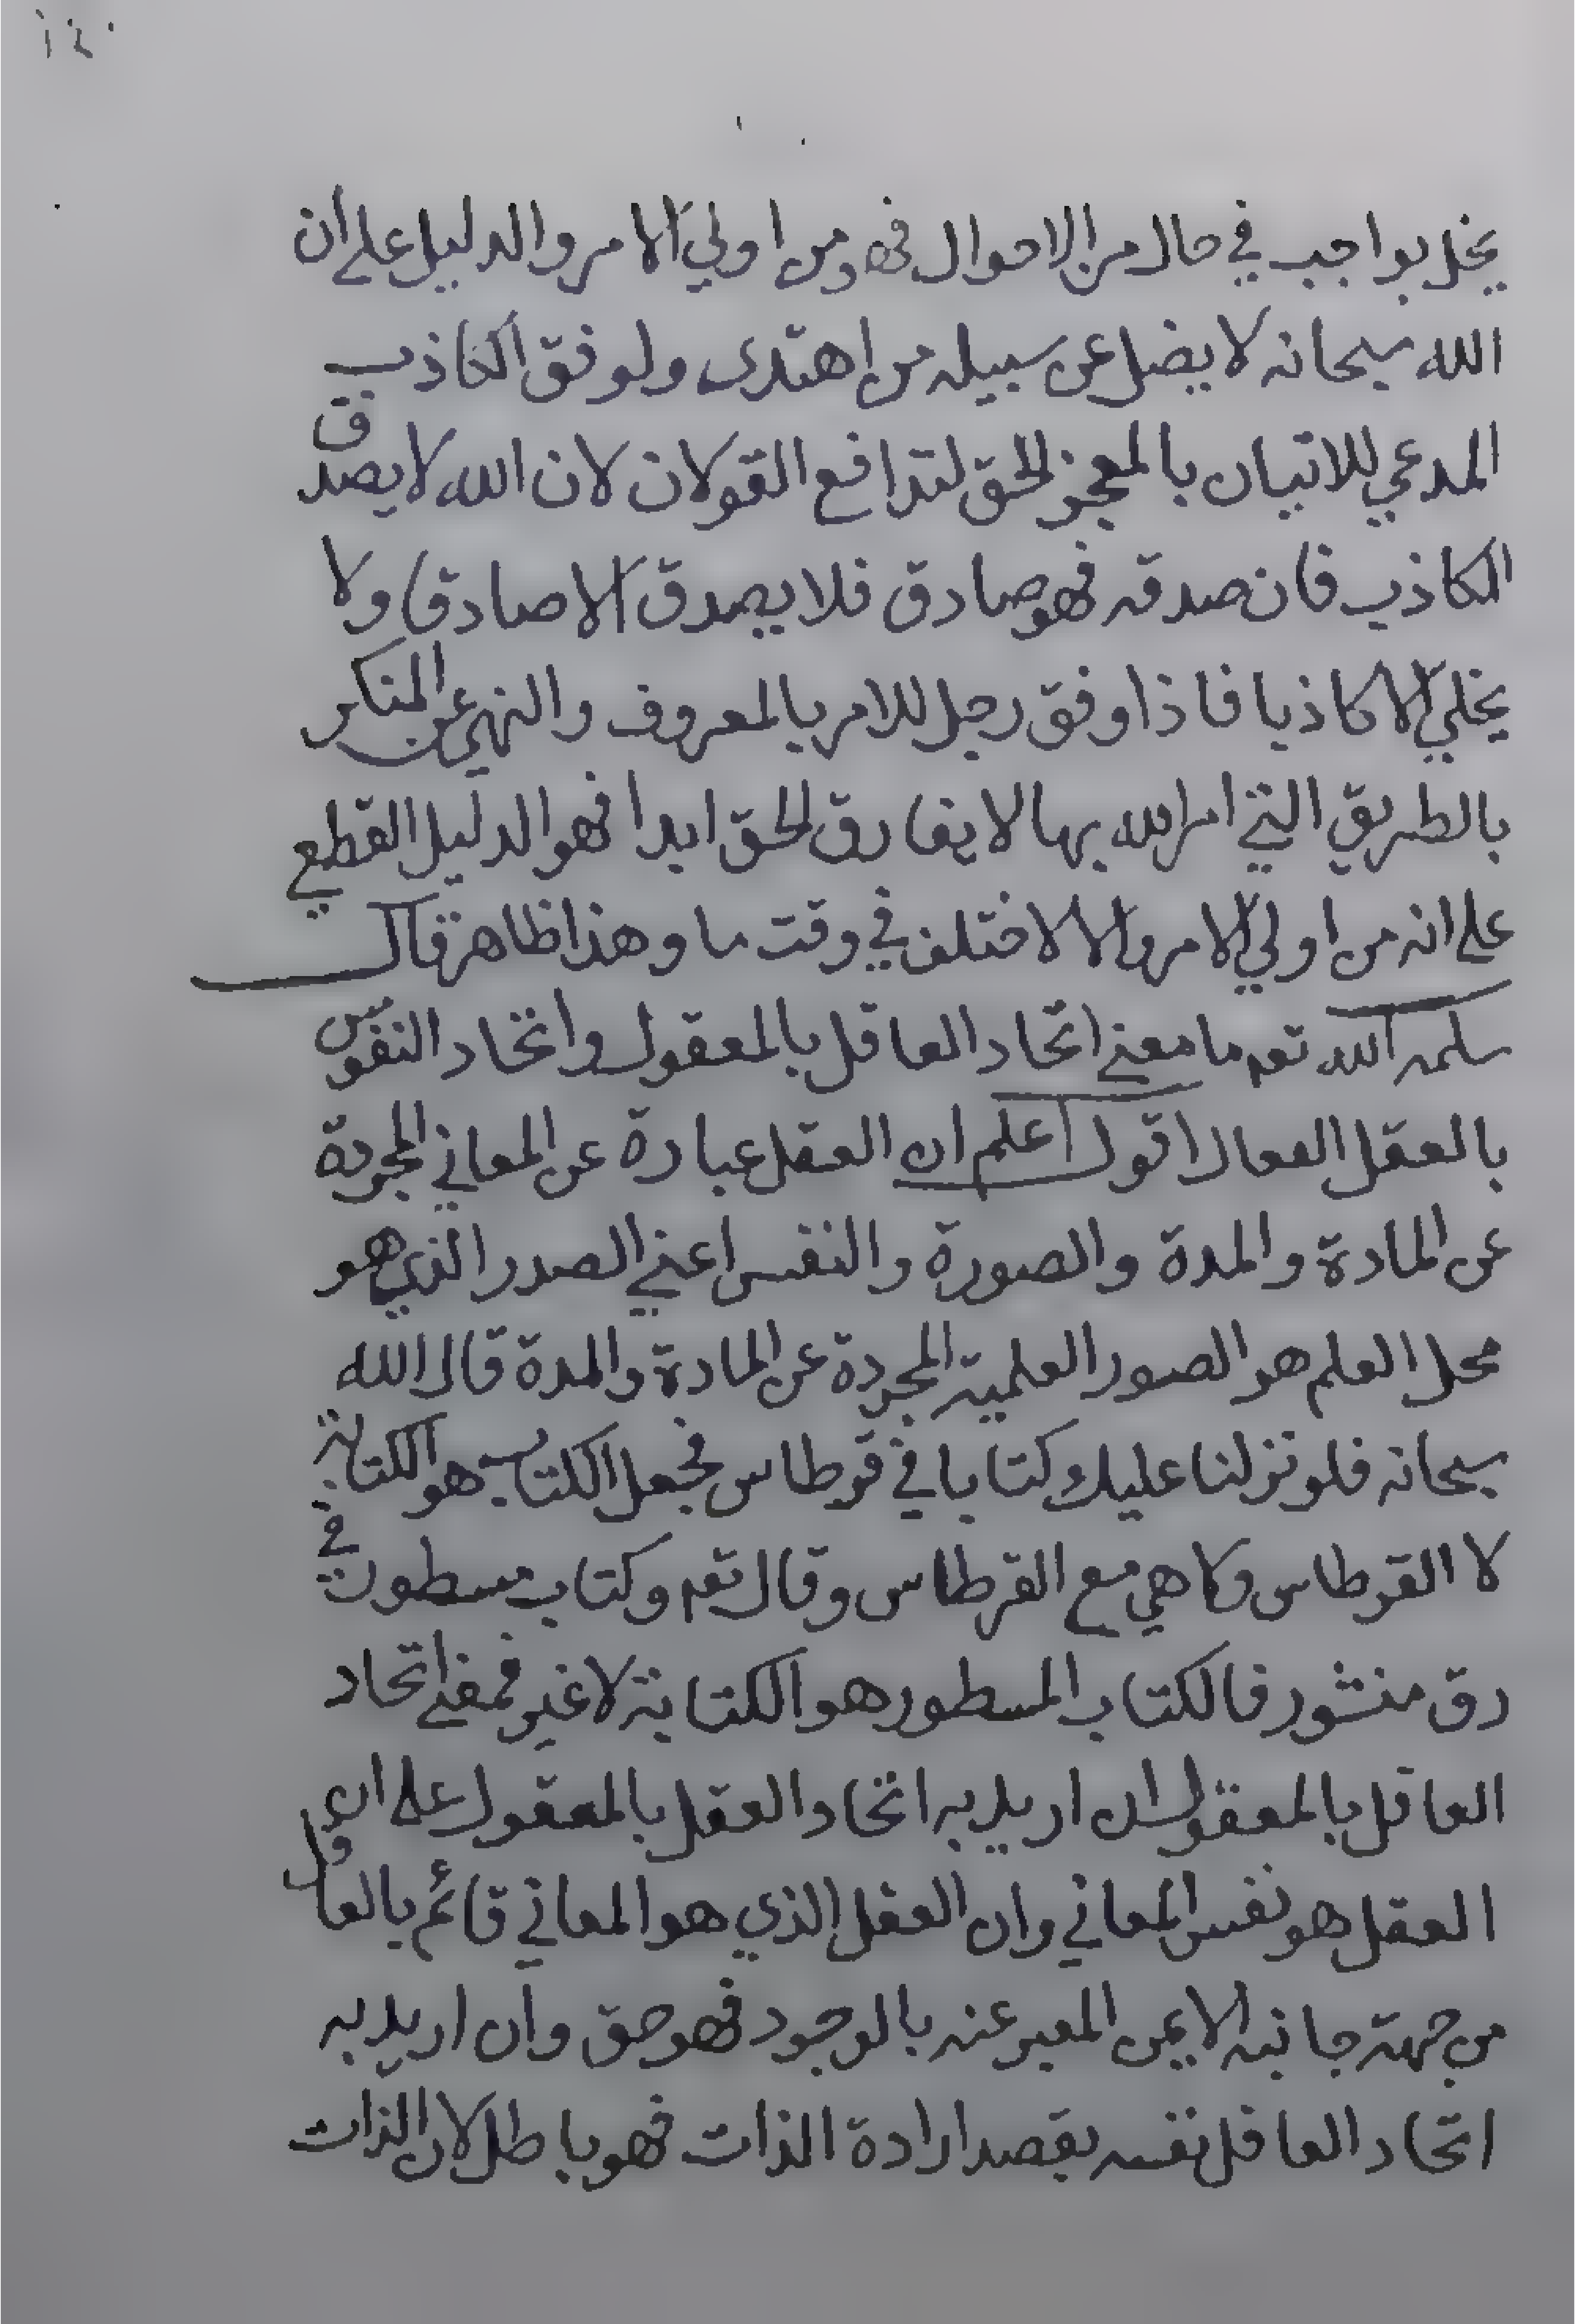 يخل بواجب في حال من الاحوال فهو من اولي الامر والدليل على ان
الله سبحانه لا يضل عن سبيله من اهتدى ولو فق الكاذب
المدعي للاتيان بالمعجز لحق لتدافع القولان لان الله لا يصدق
الكاذب فان صدقه فهو صادق فلا يصدق الا صادقا ولا
يخلي الا كاذبا فاذا وفق رجل للامر بالمعروف والنهي عن المنكر
بالطريق التي امر الله بها لا يفارق الحق ابدا فهو الدليل القطعي
على انه من اولي الامر والا لاختلف في وقت ما وهذا ظاهر قال
سلمه الله تعه ما معنى اتحاد العاقل بالمعقول واتحاد النفوس
بالعقل الفعال اقول اعلم ان العقل عبارة عن المعاني المجردة
عن المادة والمدة والصورة والنفس اعني الصدر الذي هو
محل العلم هو الصور العلمية المجردة عن المادة والمدة قال الله
سبحانه فلو نزلنا عليك كتابا في قرطاس فجعل الكتاب هو الكتابة
لا القرطاس ولا هي مع القرطاس وقال تعه وكتاب مسطور في
رق منشور فالكتاب المسطور هو الكتابة لا غير فمعنى اتحاد
العاقل بالمعقول ان اريد به اتحاد العقل بالمعقول على ان
العقل هو نفس المعاني وان العقل الذي هو المعاني قائم بالعاقل
من جهة جانبه الايمن المعبر عنه بالوجود فهو حق وان اريد به
اتحاد العاقل نفسه بقصد ارادة الذات فهو باطل لان الذات